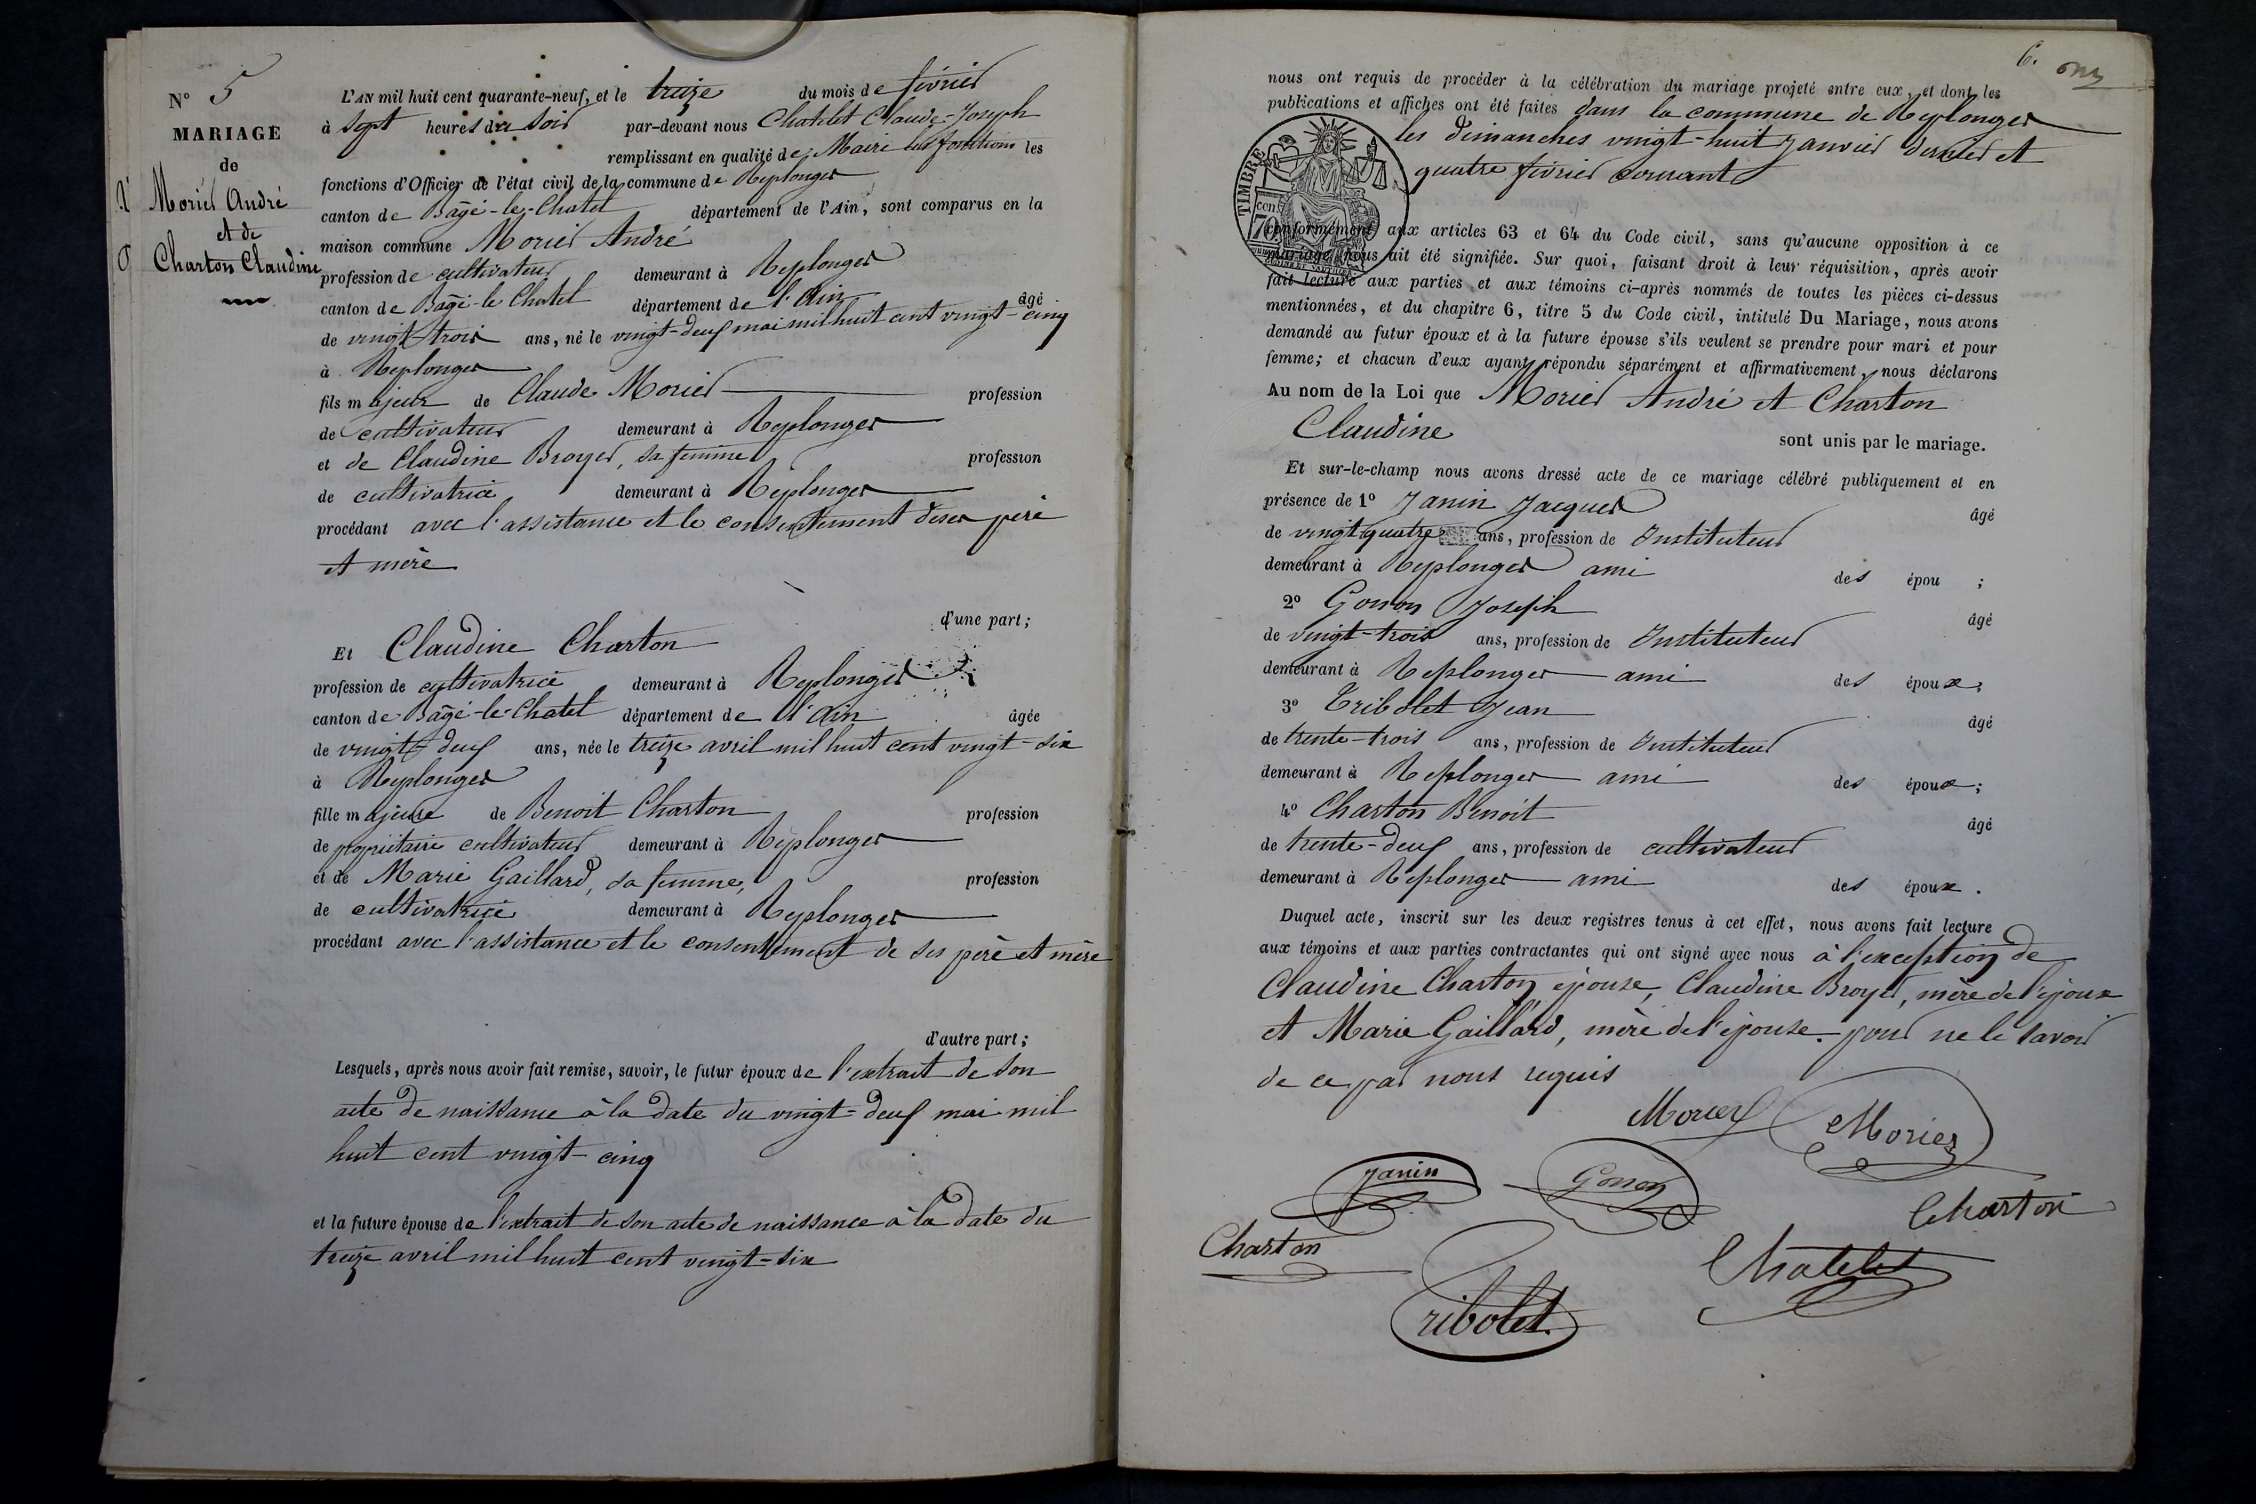 N° 5
MARIAGE
de
Morier André
et de
Charton Claudine
L'AN mil huit cent quarante-neuf, et le treize du mois de février
à sept heures du soir par-devant nous Chatelet Claude-Joseph
remplissant en qualité de Maire les fonctions les
fonctions d'Officier de l'état civil de la commune de Replonges
canton de Bagé-le-Chatel département de l'Ain, sont comparus en la
maison commune Morier André
profession de cultivateur demeurant à Replonges
canton de Bagé-le Chatel département de l'Ain âgé
de vingt-trois ans, né le vingt-deux mai mil huit cent vingt-cinq
à Replonges
fils majeur de Claude Morier profession
de cultivateur demeurant à Replonges
et de Claudine Broyer, sa femme profession
de cultivatrice demeurant à Replonges
procédant avec l'assistance et le consentement de ses père
et mère
d'une part;
Et Claudine Charton
profession de cultivatrice demeurant à Replonges
canton de Bagé-le-Chatel département de l'Ain âgée
de vingt-deux ans, née le treize avril mil huit cent vingt-six
à Replonges
fille majeure de Benoit Charton profession
de propriétaire cultivateur demeurant à Replonges
et de Marie Gaillard, sa femme, profession
de cultivatrice demeurant à Replonges
procédant avec l'assistance et le consentement de ses père et mère
d'autre part;
Lesquels, après nous avoir fait remise, savoir, le futur époux de l'extrait de son
acte de naissance à la date du vingt-deux mai mil
huit cent vingt-cinq
et la future épouse de l'extrait de son acte de naissance à la date du
treize avril mil huit cent vingt-six
6.
nous ont requis de procéder à la célébration du mariage projeté entre eux, et dont les
publications et affiches ont été faites dans la commune de Replonges
les dimanches vingt-huit janvier dernier et
quatre février courant
TIMBRE
cen.
70
conformément aux articles 63 et 64 du Code civil, sans qu'aucune opposition à ce
mariage nous ait été signifiée. Sur quoi, faisant droit à leur réquisition, après avoir
fait lecture aux parties et aux témoins ci-après nommés de toutes les pièces ci-dessus
mentionnées, et du chapitre 6, titre 5 du Code civil, intitulé Du Mariage, nous avons
demandé au futur époux et à la future épouse s'ils veulent se prendre pour mari et pour
femme; et chacun d'eux ayant répondu séparément et affirmativement, nous déclarons
Au nom de la Loi que Morier André et Charton
Claudine sont unis par le mariage.
Et sur-le-champ nous avons dressé acte de ce mariage célébré publiquement et en
présence de 1° Janin Jacques âgé
de vingt quatre ans, profession de Instituteur
demeurant à Replonges ami des épou ;
2° Gonon Joseph âgé
de vingt-trois ans, profession de Instituteur
demeurant à Replonges ami des époux;
3° Tribolet Jean âgé
de trente-trois ans, profession de Instituteur
demeurant à Replonges ami des époux;
4° Charton Benoit âgé
de trente-deux ans, profession de cultivateur
demeurant à Replonges ami des époux.
Duquel acte, inscrit sur les deux registres tenus à cet effet, nous avons fait lecture
aux témoins et aux parties contractantes qui ont signé avec nous à l'exception de
Claudine Charton épouse, Claudine Broyer, mère de l'époux
et Marie Gaillard, mère de l'épouse pour ne le savoir
de ce par nous requis
Morier Morier
Janin Gonon
Charton
Charton
Chatelet
Tribolet